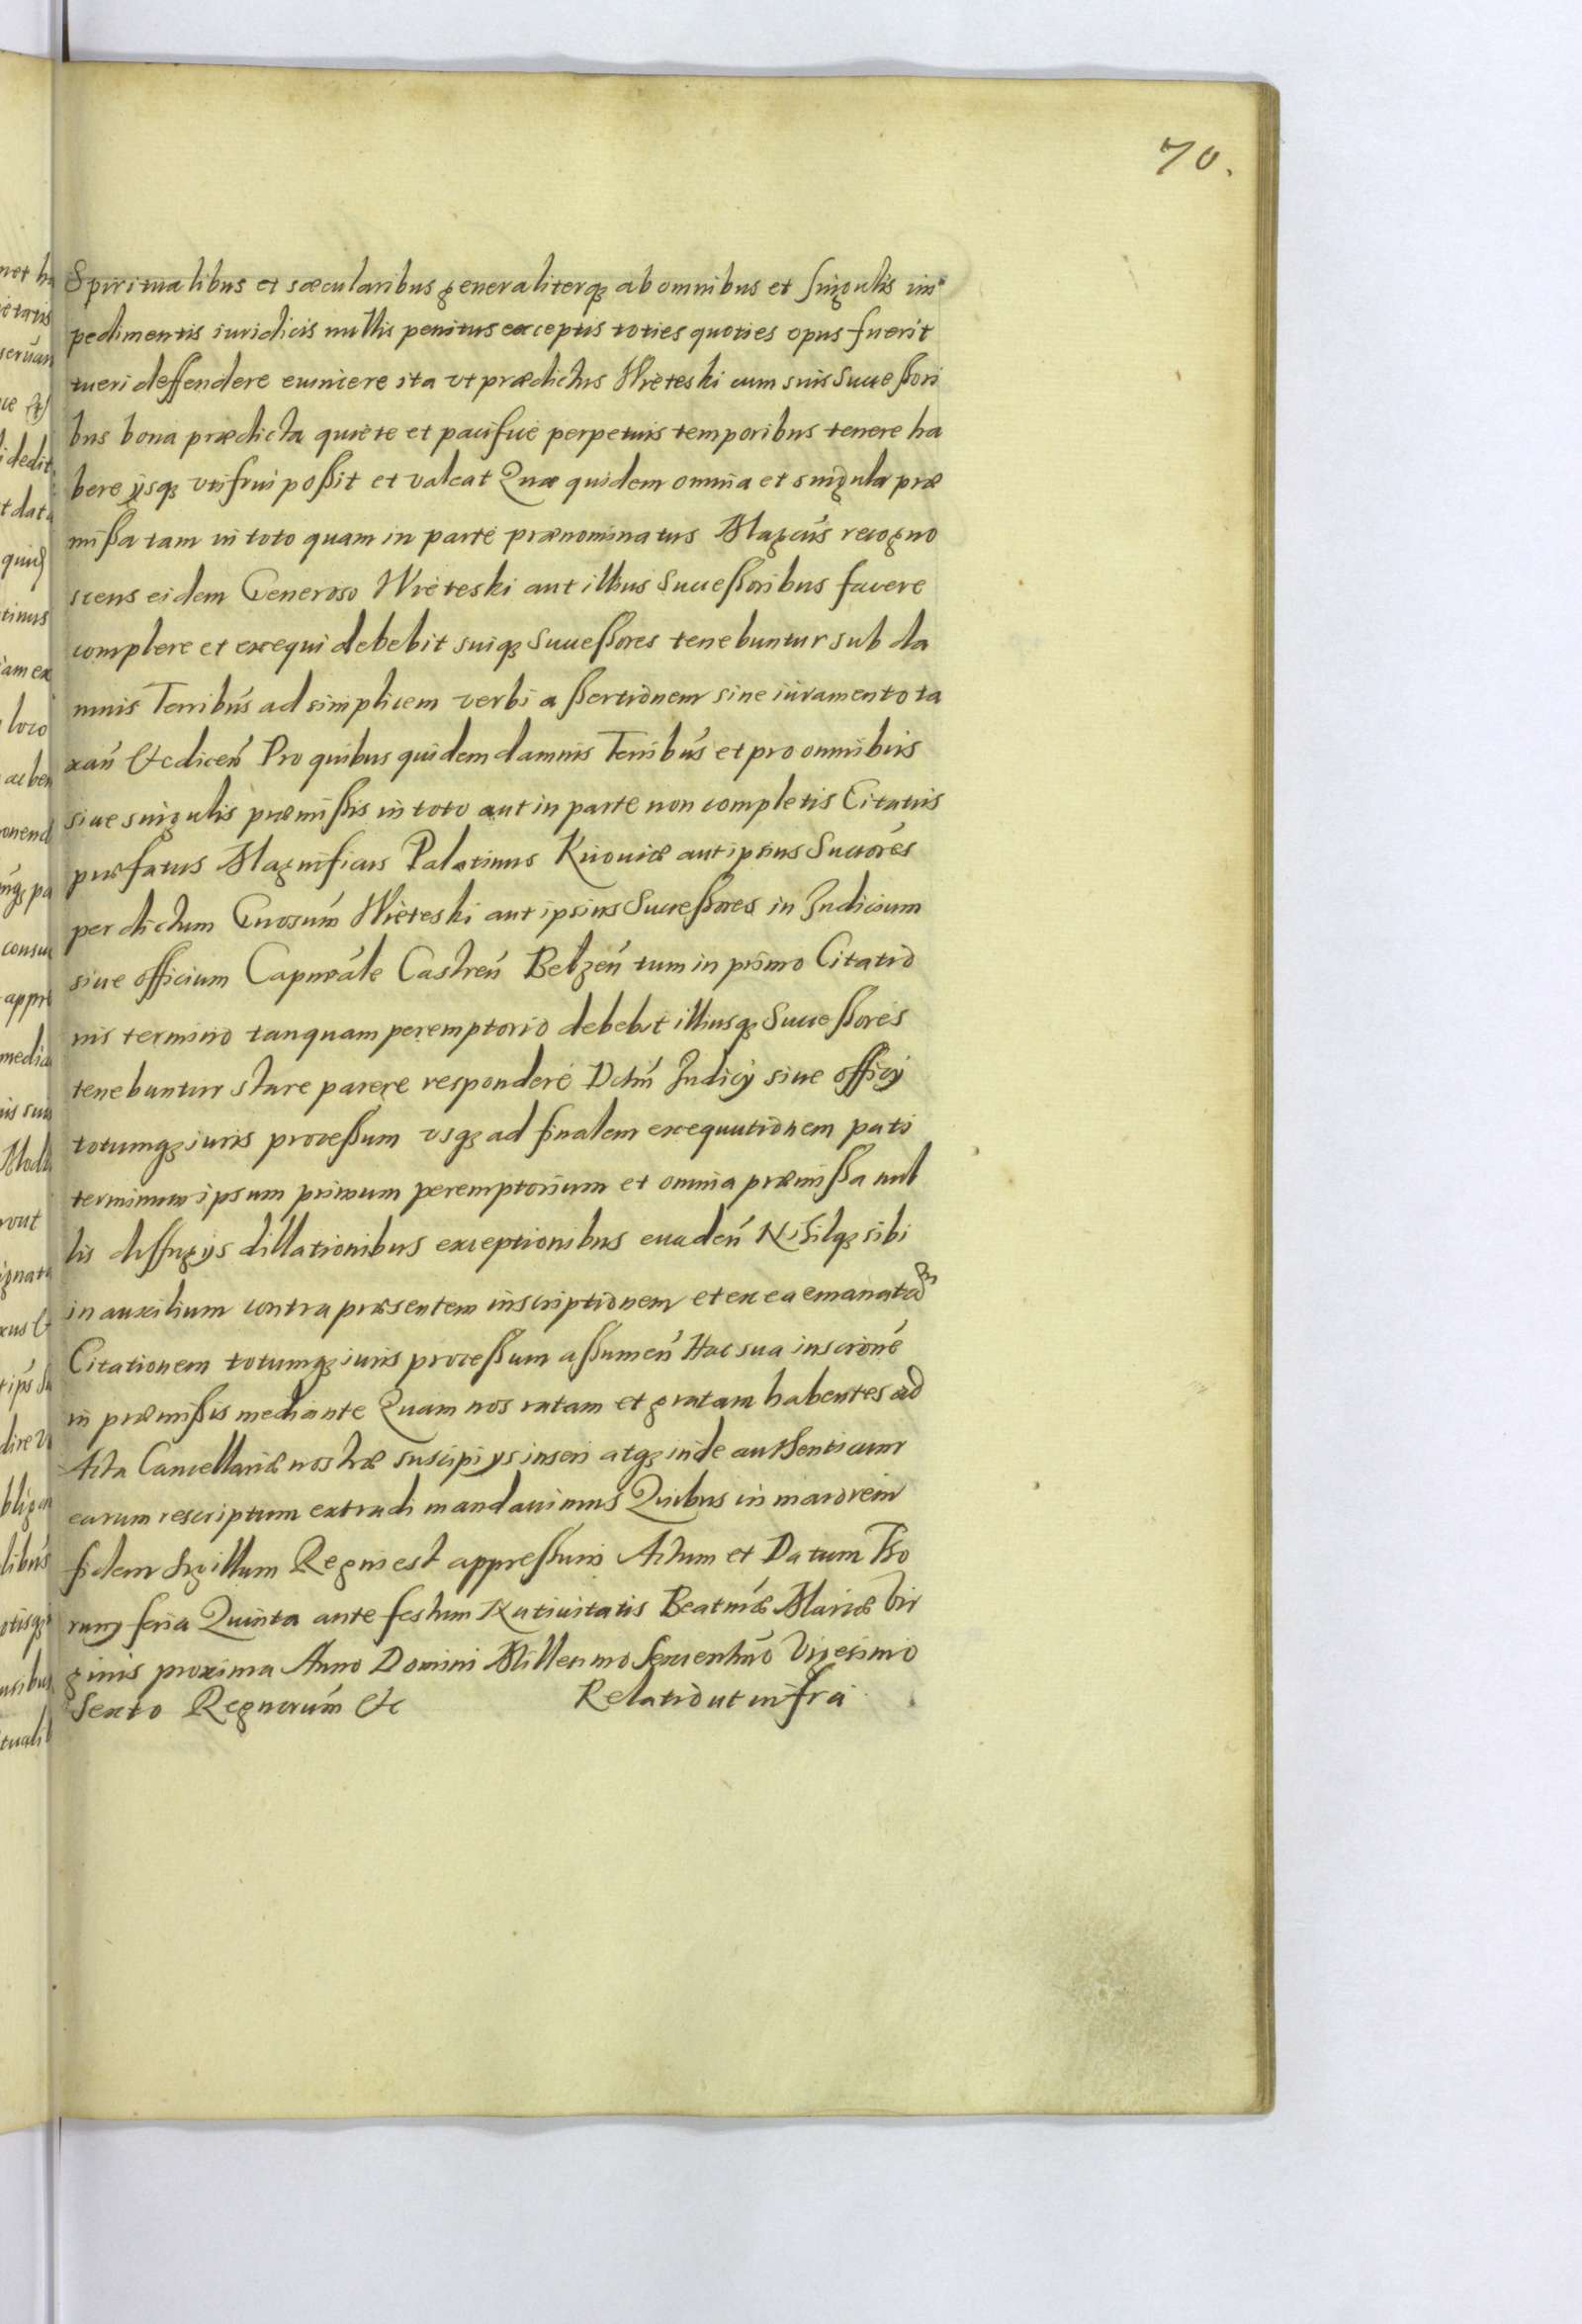 70.
Spiritualibus et sæcularibus generaliterq₃ ab omnibus et singulis im
pedimentis iuridicis nullis penitus exceptis toties quoties opus fuerit
tueri deffendere euincere ita vt prædictus Wieteski cum suis Successori
bus bona prædicta quiete et pacifice perpetuis temporibus tenere ha
bere ijsq₃ vtifrui possit et valeat Quæ quidem omnia et singula præ
missa tam in toto quam in parte prænominatus Magcus recogno
scens eidem Generoso Wieteski aut illius Successoribus facere
complere et exequi debebit suiq₃ Successores tenebuntur sub da
mnis Terribus ad simplicem verbi assertionem sine iuramento ta
xań &c diceń Pro quibus quidem damnis Terribus et pro omnibus
siue singulis præmissis in toto aut in parte non completis Citatus
præfatus Magnificus Palatinus Kiiouiæ aut ipsius Succores
per dictum Gnosum Wieteski aut ipsius Successores in Iudicium
siue officium Capneale Castreń Belzeń tum in primo Citatio
nis termino tanquam peremptorio debebit illiusq₃ Successores
tenebuntur stare parere respondere Dcti Iudicij siue officij
totumq₃ iuris processum vsq₃ ad finalem exequutionem pati
terminum ipsum primum peremptorium et omnia præmissa nul
lis diffugijs dillationibus exceptionibus euadeń Nihilq₃ sibi
in auxilium contra præsentem inscriptionem et ex ea emanatam
Citationem totumq₃ iuris processum assumeń Hac sua inscrione
in præmissis mediante Quam nos ratam et gratam habentes ad
Acta Cancellariæ nostræ suscipi ijs inseri atq₃ inde authenticum
earum rescriptum extradi mandauimus Quibus in maiorem
fidem Sigillum Regni est appressum Actum et Datum Tho
runij feria Quinta ante festum Natiuitatis Beatmæ Mariæ Vir
ginis proxima Anno Domini Millesimo Sexcentmo Vigesimo
Sexto Regnorum &c Relatio ut infra